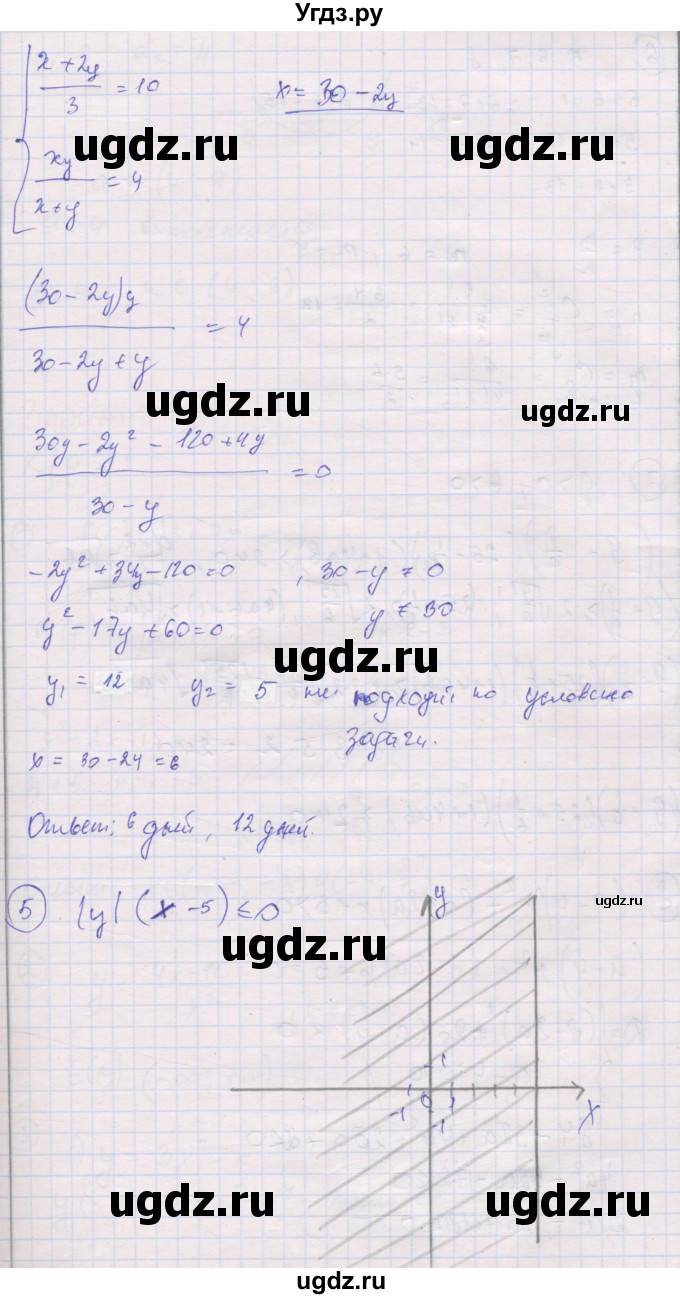 Угдз.ру
x + 2y / 3 = 10    x = 30 - 2y
ugdz.ru    ugdz.ru
xy / x + y = 4
(30 - 2y)y / 30 - 2y + y = 4
ugdz.ru    ugdz.ru
30y - 2y² - 120 + 4y / 30 - y = 0
-2y² + 34y - 120 = 0    , 30 - y ≠ 0
y² - 17y + 60 = 0    y ≠ 30
ugdz.ru
y₁ = 12    y₂ = 5 не подходит по условию
задачи.
x = 30 - 24 = 6
Ответ: 6 дней, 12 дней.
ugdz.ru
5 |y| (x - 5) ≤ 0    y
ugdz.ru
1
-1 0 1    x
-1
ugdz.ru    ugdz.ru
ugdz.ru